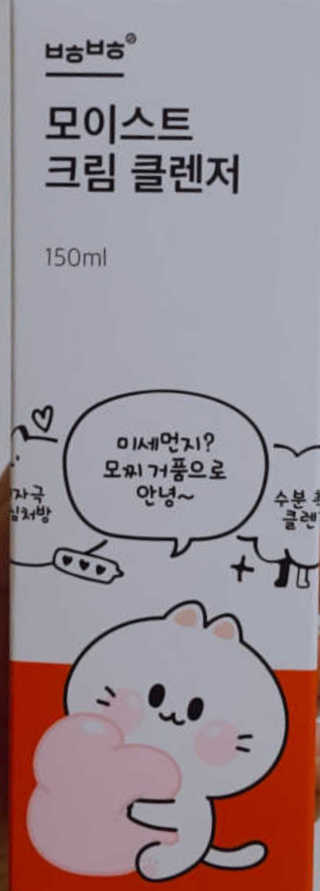 ㅂㅎㅂㅎ
모이스트
크림 클렌저
150ml
미세먼지?
모찌 거품으로
안녕~
자극
심처방
수분
클렌